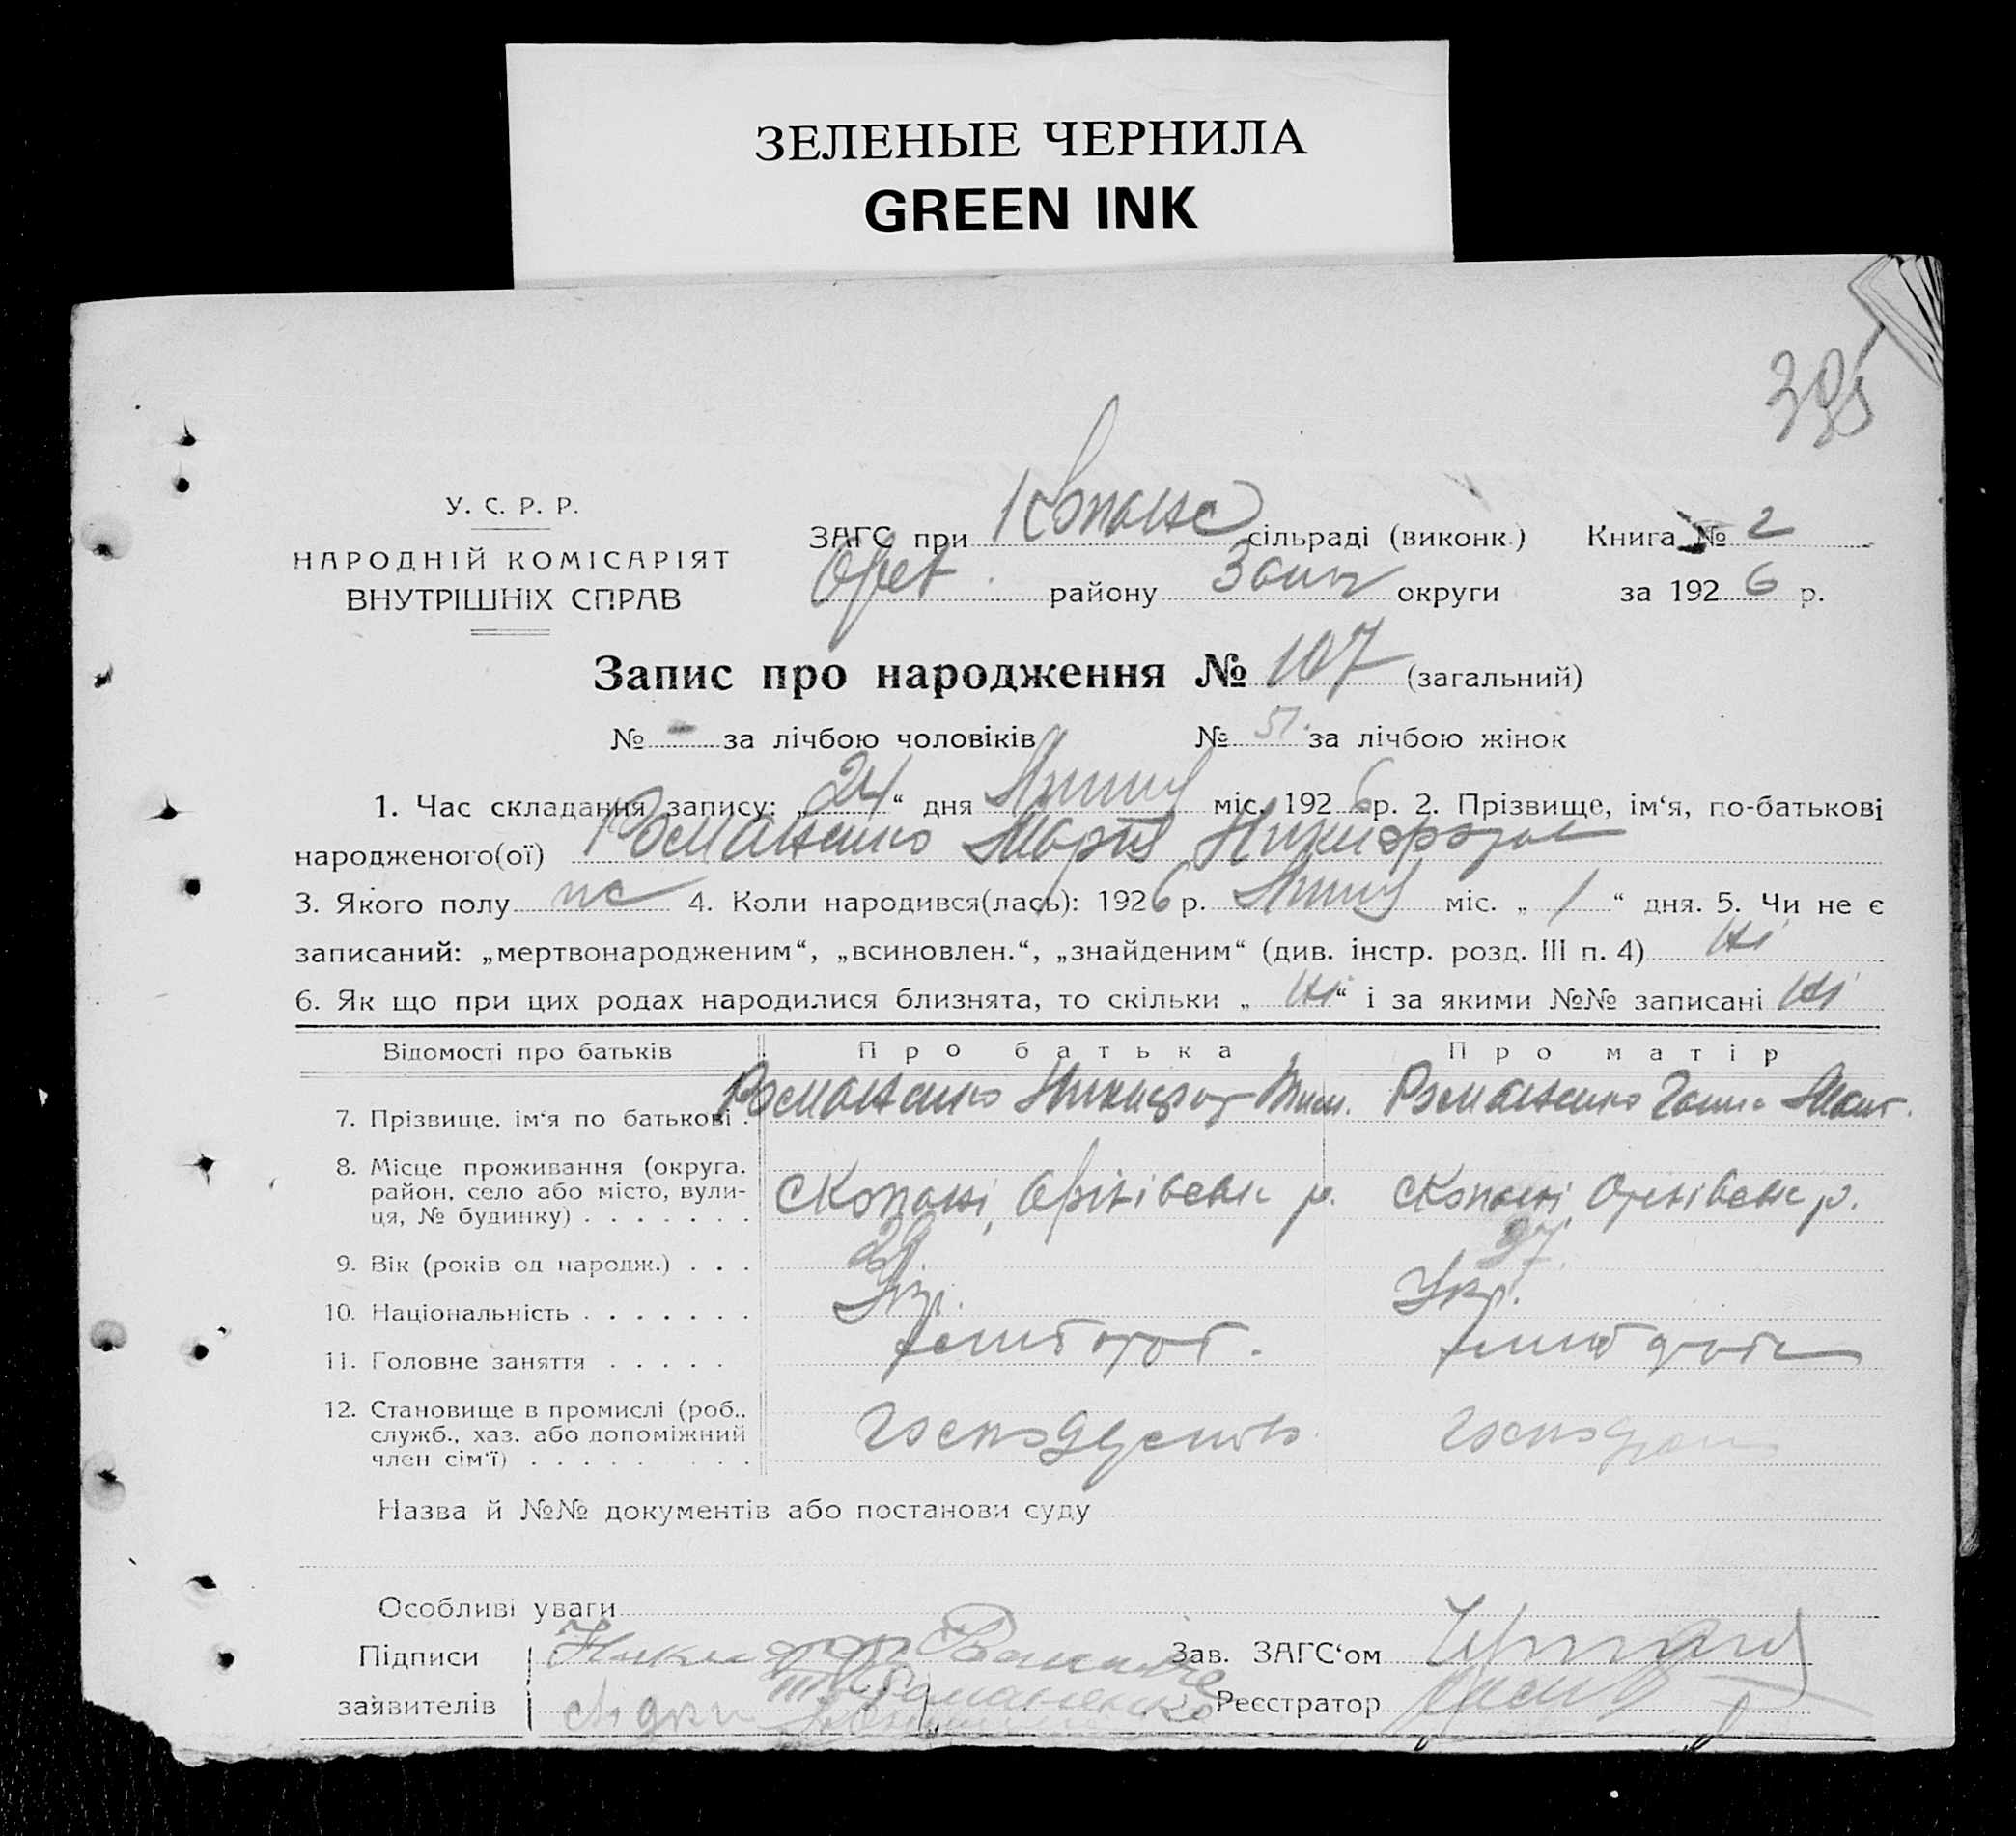 ЗЕЛЕНЫЕ ЧЕРНИЛА
GREEN INK
395
У. С. Р. Р.
НАРОДНІЙ КОМІСАРІЯТ
ВНУТРІШНІХ СПРАВ
ЗАГС при Копанс сільраді (виконк.) Книга № 2
Орет. району Запор округи за 1926 р.
Запис про народження № 107 (загальний)
№ - за лічбою чоловіків № 51. за лічбою жінок
1. Час складання запису: „24“ дня Липня міс. 1926 р. 2. Прізвище, ім‘я, по-батькові
народженого(ої) Романенко Марія
3. Якого полу жс 4. Коли народився(лась): 1926 р. Липня міс. „1“ дня. 5. Чи не є
записаний: „мертвонародженим“, „всиновлен.“, „знайденим“ (див. інстр. розд. III п. 4) Ні
6. Як що при цих родах народилися близнята, то скільки „Ні“ і за якими №№ записані Ні
Відомості про батьків Про батька Про матір
7. Прізвище, ім‘я по батькові . Романенко Никифор Романенко Ганна
8. Місце проживання (округа. район, село або місто, вулиця, № будинку) . . . . . . . с Копані, Оріхівськ р. с Копані, Оріхівськ р.
9. Вік (років од народж.) . . . 29 27.
10. Національність . . . . . . . Укр. Укр.
11. Головне заняття . . . . .
12. Становище в промислі (роб., служб., хаз. або допоміжний член сім‘ї) . . . . . . . . .
Назва й №№ документів або постанови суду
Особливі уваги
Підписи Никифор Зав. ЗАГС‘ом
заявителів Романенко Реєстратор